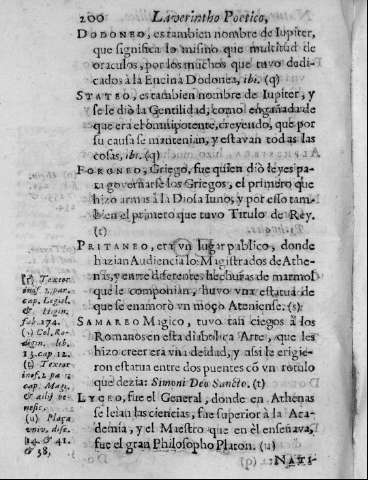 200 Laverintho Poetico,
DODONEO, es tambien nombre de Iupiter,
que significa lo mismo que multitud de
oraculos, por los muchos que tuvo dedi-
cados à la Encina Dodonea, ibi. (q)
STATEO, es tambien nombre de Iupiter, y
se le diò la Gentilidad, como engañada de
que era el omnipotente, creyendo, que por
su causa se mantenian, y estavan todas las
cosas, ibi. (q)
FORONEO, Griego, fue quien diò leyes pa-
ra governarse los Griegos, el primero que
hizo armas à la Diosa Iuno, y por esso tam-
bien el primero que tuvo Titulo de Rey.
(r)
PRITANEO, era vn lugar publico, donde
hazian Audiencia lo; Magistrados de Athe-
nas, y entre diferentes hechuras de marmol
que le componian, huvo vna estatua de
que se enamorò vn moço Ateniense. (s)
SAMAREO Magico, tuvo tan ciegos à los
Romanos en esta diabolica Arte, que les
hizo creer era vna deidad, y assi le erigie-
ron estatua entre dos puentes cõ vn rotulo
que dezia: Simoni Deo Sancto. (t)
LYCEO, fue el General, donde en Athenas
se leian las ciencias, fue superior à la Aca-
demia, y el Maestro que en èl enseñava,
fue el gran Philosopho Platon. (u)
NATI-
(r) Textor
inof. 2. par.
cap. Legisl.
& Higin.
fab. 274.
(s) Cel. Ro-
digin. lib.
13. cap. 12.
(t) Textor
inof. 2. pa
cap. Magi,
&
nefic.
(u) Plaça
univ. disc.
14. & 41.
& 58,